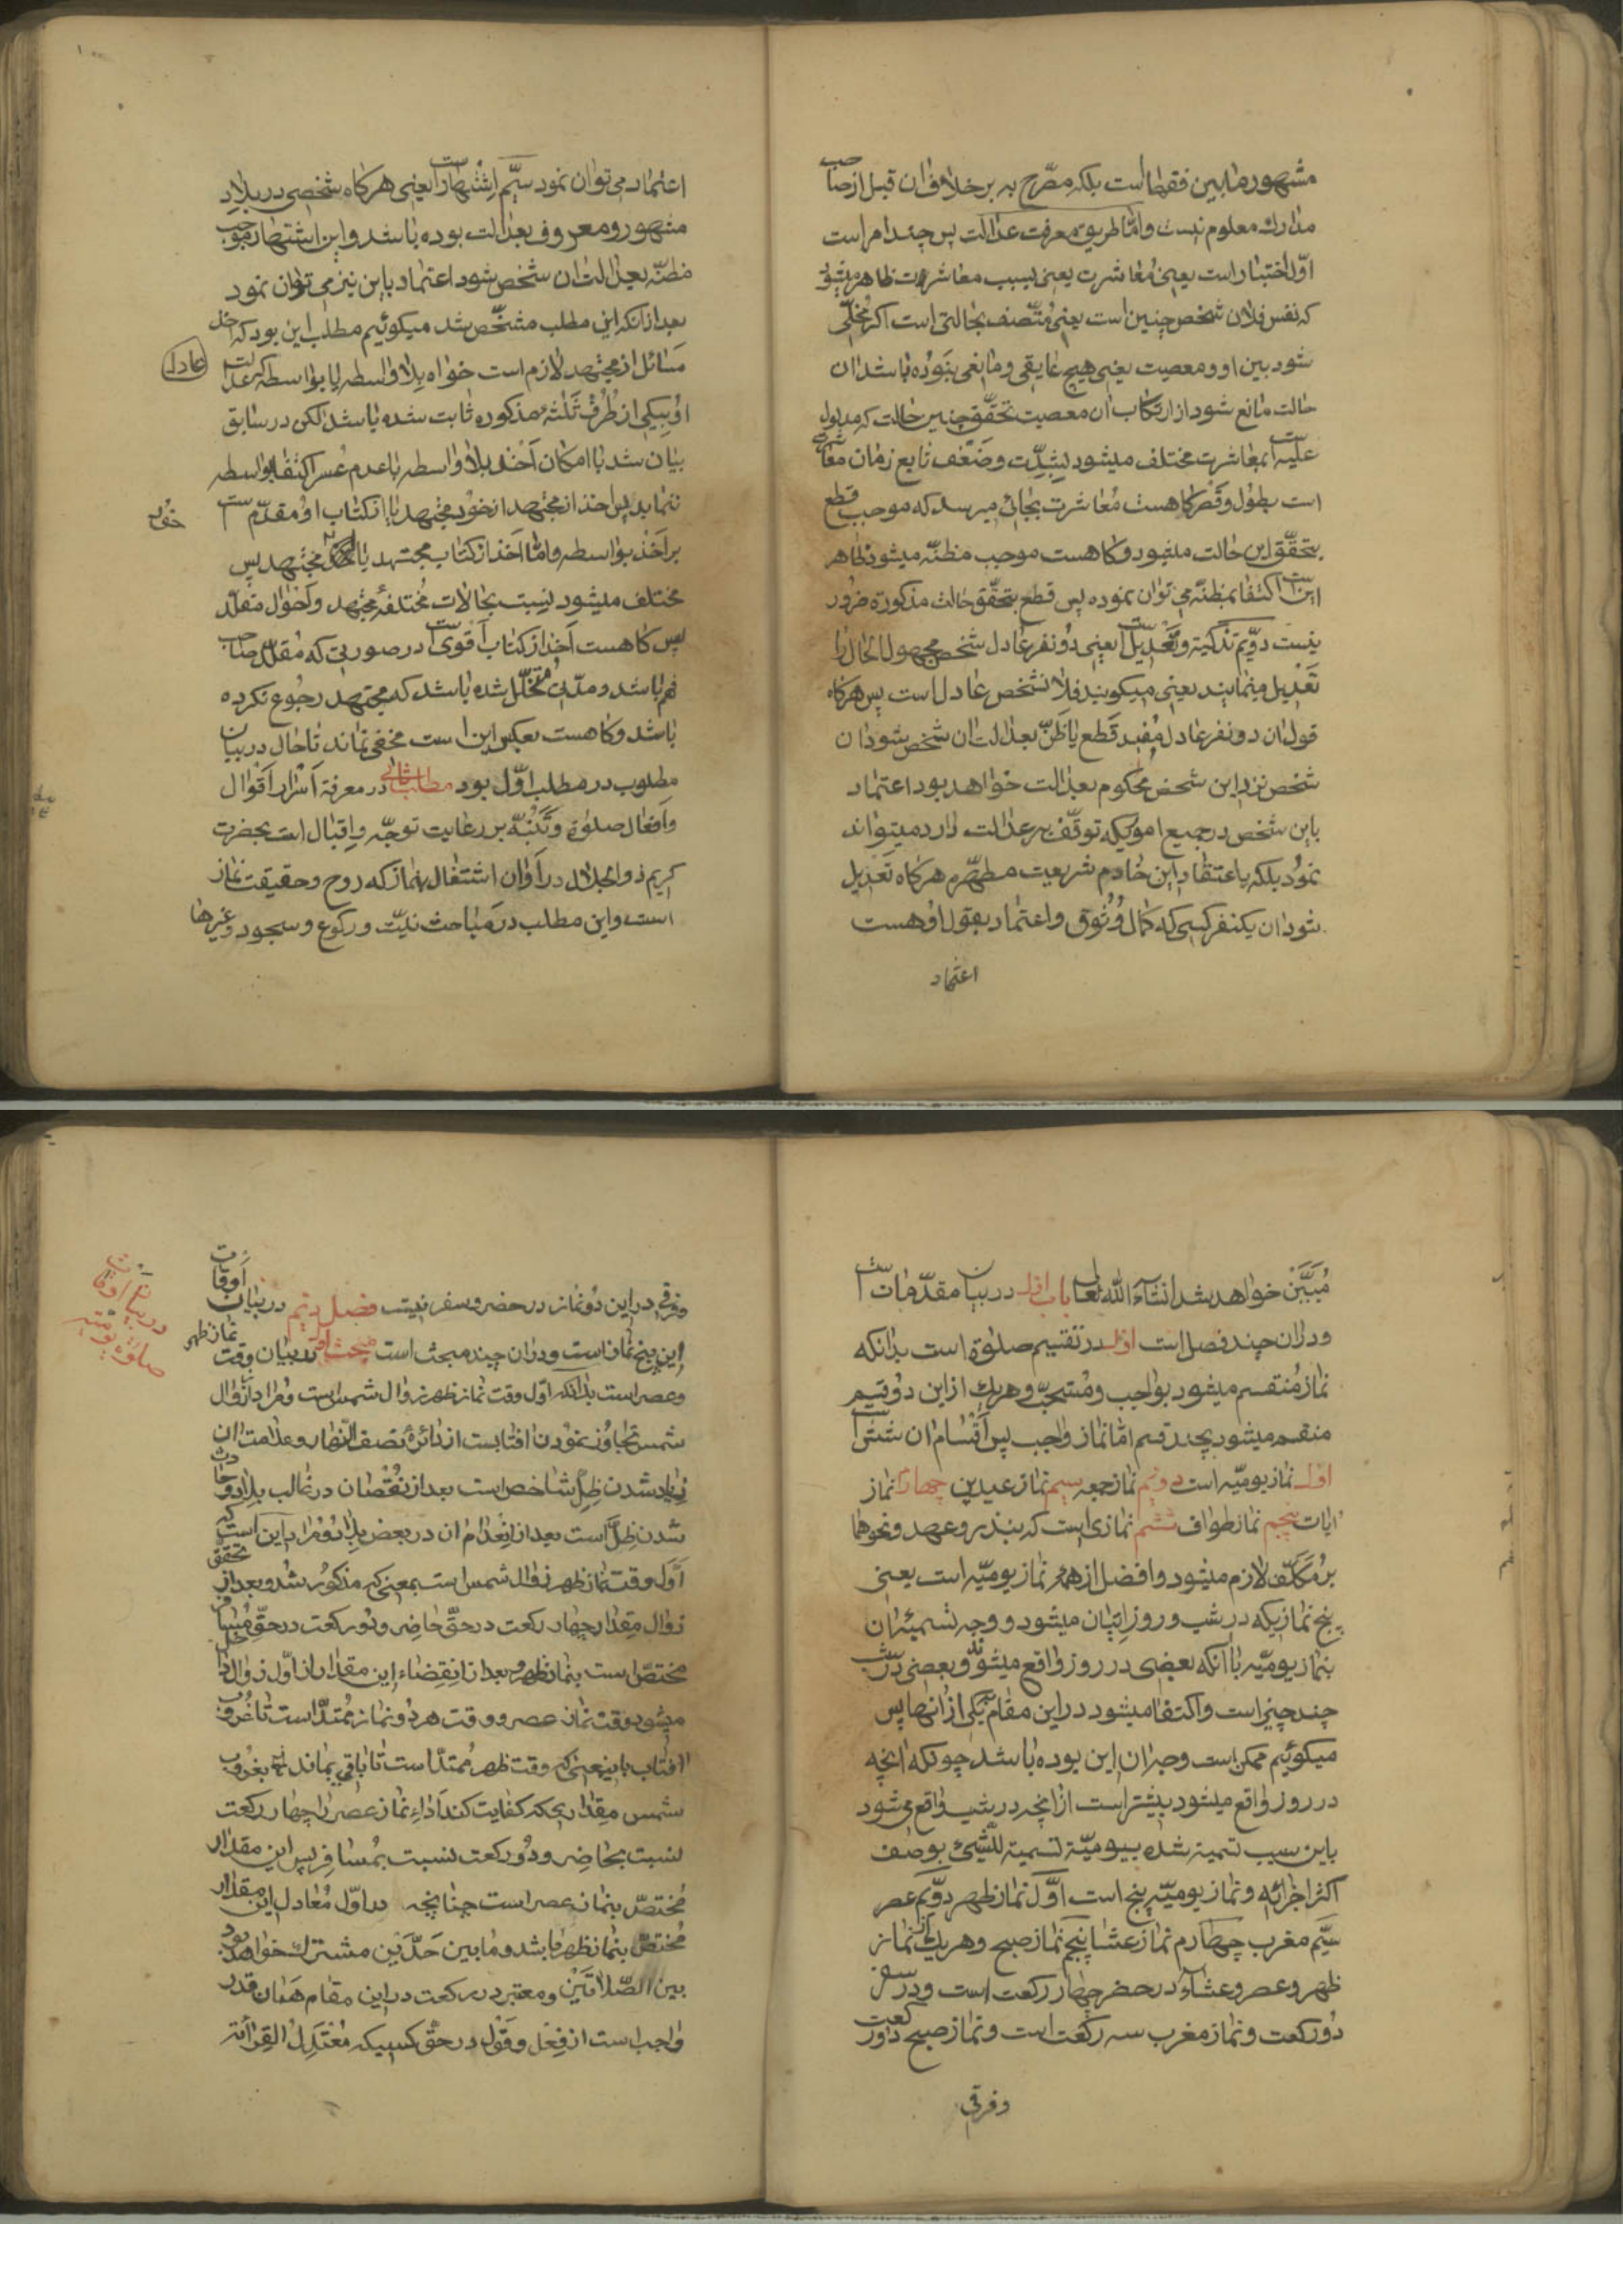 مشهور ما بین فقها است بلکه مصّرح به بر خلاف ان قبل از صاحب
مدارك معلوم نیست و امّا طریق معرفت عدالت پس چند امر است
اوّل اختبار است یعنی مُعاشرت یعنی بسبب معاشرت ظاهر میشود
که نفس فلان شخص چنین است یعنی مُتّصف بحالتی است اکر مُخلّی
شود بین او و معصیت یعنی هیچ عایقی و مانعی نبَوده باشد ان
حالت مانع شود از ارتکاب ان معصیت تحقّق چنین حالت که مدلول
علیه است بمعاشرت مختلف میشود بشدّت وضَعْف تابع زمان معاشرت
است بطول و قصر کاهست مُعاشرت بجائی میرسد که موجب قطع
بتحقّق این حالت میشود و کاهست موجب مظنّه میشود ظاهر
این است اکتفا بمظنّه می توان نموده پس قطع بتحقّق حالت مذکوره ضرور
نیست دوّیم تذکیّة و تَعْدِیل است یعنی دُو نفر عادل شخص مجهول الحال را
تَعْدِیل مینمایند یعنی میکویند فلان شخص عادل است پس هرکاه
قول ان دو نفر عادل مُفید قَطع یا ظَنّ بعدالت ان شخص شود ان
شخص نزد این شخص محکوم بعدالت خواهد بود اعتماد
باین شخص در جمیع امویکه توقّف بر عدالت دارد میتواند
نمُود بلکه باعتقاد این خادم شریعت مطهّره هرکاه تَعْدِیل
شود ان یکنفر کسی که کمال وُثُوق و اعتماد بقول او هست
اعتماد
اعتماد می توان نمود سیّم اِشْتِهار است یعنی هرکاه شخصی در بلادِ
مشهور و معروف بعدالت بوده باشد و این اشتهار موجب
مضنّه بعدالت ان شخص شود اعتماد باین نیز می توان نمود
بعد از انکه این مطلب مشخّص شد میکوئیم مطلب این بود که اخذ
مَسائل از مجتهد لازم است خواه بِلا واسطه یا بواسطه که عدالت
عادل
اوُ بیکی از طُرُف ثَلٰثه مذکوره ثابت شده باشد لکن در سابق
بیان شد با امکان اَخْذ بلا واسطه با عدم عُسر اکتفا بواسطه
ننماید پس اخذ از مجتهد از خوُد مجتهد یا از کتاب اوُ مقدّم است
خوُد
بر اَخْذ بواسطه و امّا اَخذ از کتاب مجتهد یا مجتهد پس
مختلف میشود نسِبت بحالات مُختلفۀ مجتهد و اَحْوال مقلّد
پس کاهست اَخذ از کتاب اَقویٰ است در صورتی که مُقلّد صاحب
فهم باشد و مدّتی مُتَخَلّل شده باشد که بمجتهد رجُوع نکرده
باشد و کاهست بعکس این است مخفی نماند تا حال در بیان
مطلوب در مطلب اوّل بود مطلب ثانی در معرفة اَسْرار اَقْوال
و اَفعال صلوٰة و تَنَبُّه بر رعایت توجّه و اِقبال است بحضرت
کریم ذو الجلال در اَوٰان اشتغال بنماز که روح و حقیقت نماز
است و این مطلب در مَباحث نیّت و رکوع و سجود و غیرها
مُبَیَّن خواهد شد انشآء الله تعالی باب اول در بیان مقدّمات است
و دران چند فصل است اول در تقسیم صلوٰة است بدانکه
نماز مُنقسم میشود بواجب و مُستحبّ و هریك از این دُو قسِم
منقسم میشود بچند قسِم امّا نماز واجب پس اَقْسٰام ان شش است
اول نماز یومیّه است دویّم نماز جمعه سیم نماز عیدین چهارم نماز
ایات پنجم نماز طواف ششم نمازی است که بنذر و عهد و نحوهما
برمُکَلّف لازم میشود و افضل از همه نماز یومیّه است یعنی
پنج نمازیکه در شب و روز اِتیٰان میشود و وجه تسمیۀ ان
بنماز یومیّه با آنکه بعضی در روز واقع میشود و بعضی در شب
چند چیز است و اکتفا میشود در این مقام بیکی از انها پس
میکوئیم ممکن است وجه ان این بوده باشد چونکه انچه
در روز واقع میشود بیشتر است از انچه در شب واقع می شود
باین سبب تسمیة شده بیومیّة تسمیة للشّیئ بوصف
اکثر اجزائه و نماز یومیّه پنج است اوّل نماز ظهر دوّیّم عصر
سیّم مغرب چهارم نماز عشا پنجم نماز صبح و هریك از نماز
ظهر و عصر و عشآء در حضر چهار رکعت است و در سفر
دُو رکعت و نماز مغرب سه رکعت است و نماز صبح دو رکعت
و فرقی
و فرقی در این دُو نماز در حضر و سفر نیست فصل دیّم در بیان اَوقات
در بیان اوقات
صلوٰة یومیّه
این پنج نماز است و دران چند مبحث است مبحث اول در بیان وقت نماز ظهر
و عصر است بدانکه اوّل وقت نماز ظهر زوال شمس است و مُراد از زوال
شمس تجاوُز نموُدن افتابست از دائرۀ نصف النّهار و علامت ان
زیاد شدن ظِلّ شاخص است بعد از نُقْصٰان در غالب بلاد و حادث
شدن ظِلّ است بعد از اِنْعِدٰام ان در بعض بلاد و مُراد باین است که
اَوّل وقت نماز ظهر زوال شمس است بمعنی که مذکوُر شد و بعد از تحقق
زوال مِقدار چهار رکعت در حقّ حاضِر و دُو رکعت در حقّ مُسافر
مختصّ است بنماز ظهر و بعد از اِنقِضاء این مقدار از اوّل زوال داخل
میشود وقت نماز عصر و وقت هر دُو نماز مُمتدّ است تا غُروب
افتاب باینمعنی که وقت ظهر مُمتدّ است تا باقی بماند بغروب
شمس مِقدار یکه کفایت کند اَداءِ نماز عصر را چهار رکعت
نسبت بحاضِر و دُو رکعت نسبت بمُسافر پس این مقدار
مُختصّ بنماز عصر است چنانچه در اوّل مُعادل این مقدار
مُختصّ بنماز ظهر باشد و ما بین حَدَّیْن مشترك خواهد بود
بین الصّلاتَیْن و معتبر در رکعت در این مقام همان قدر
واجب است از فِعْل و قَوْل در حقّ کسیکه مُعْتَدِلُ القِرائة